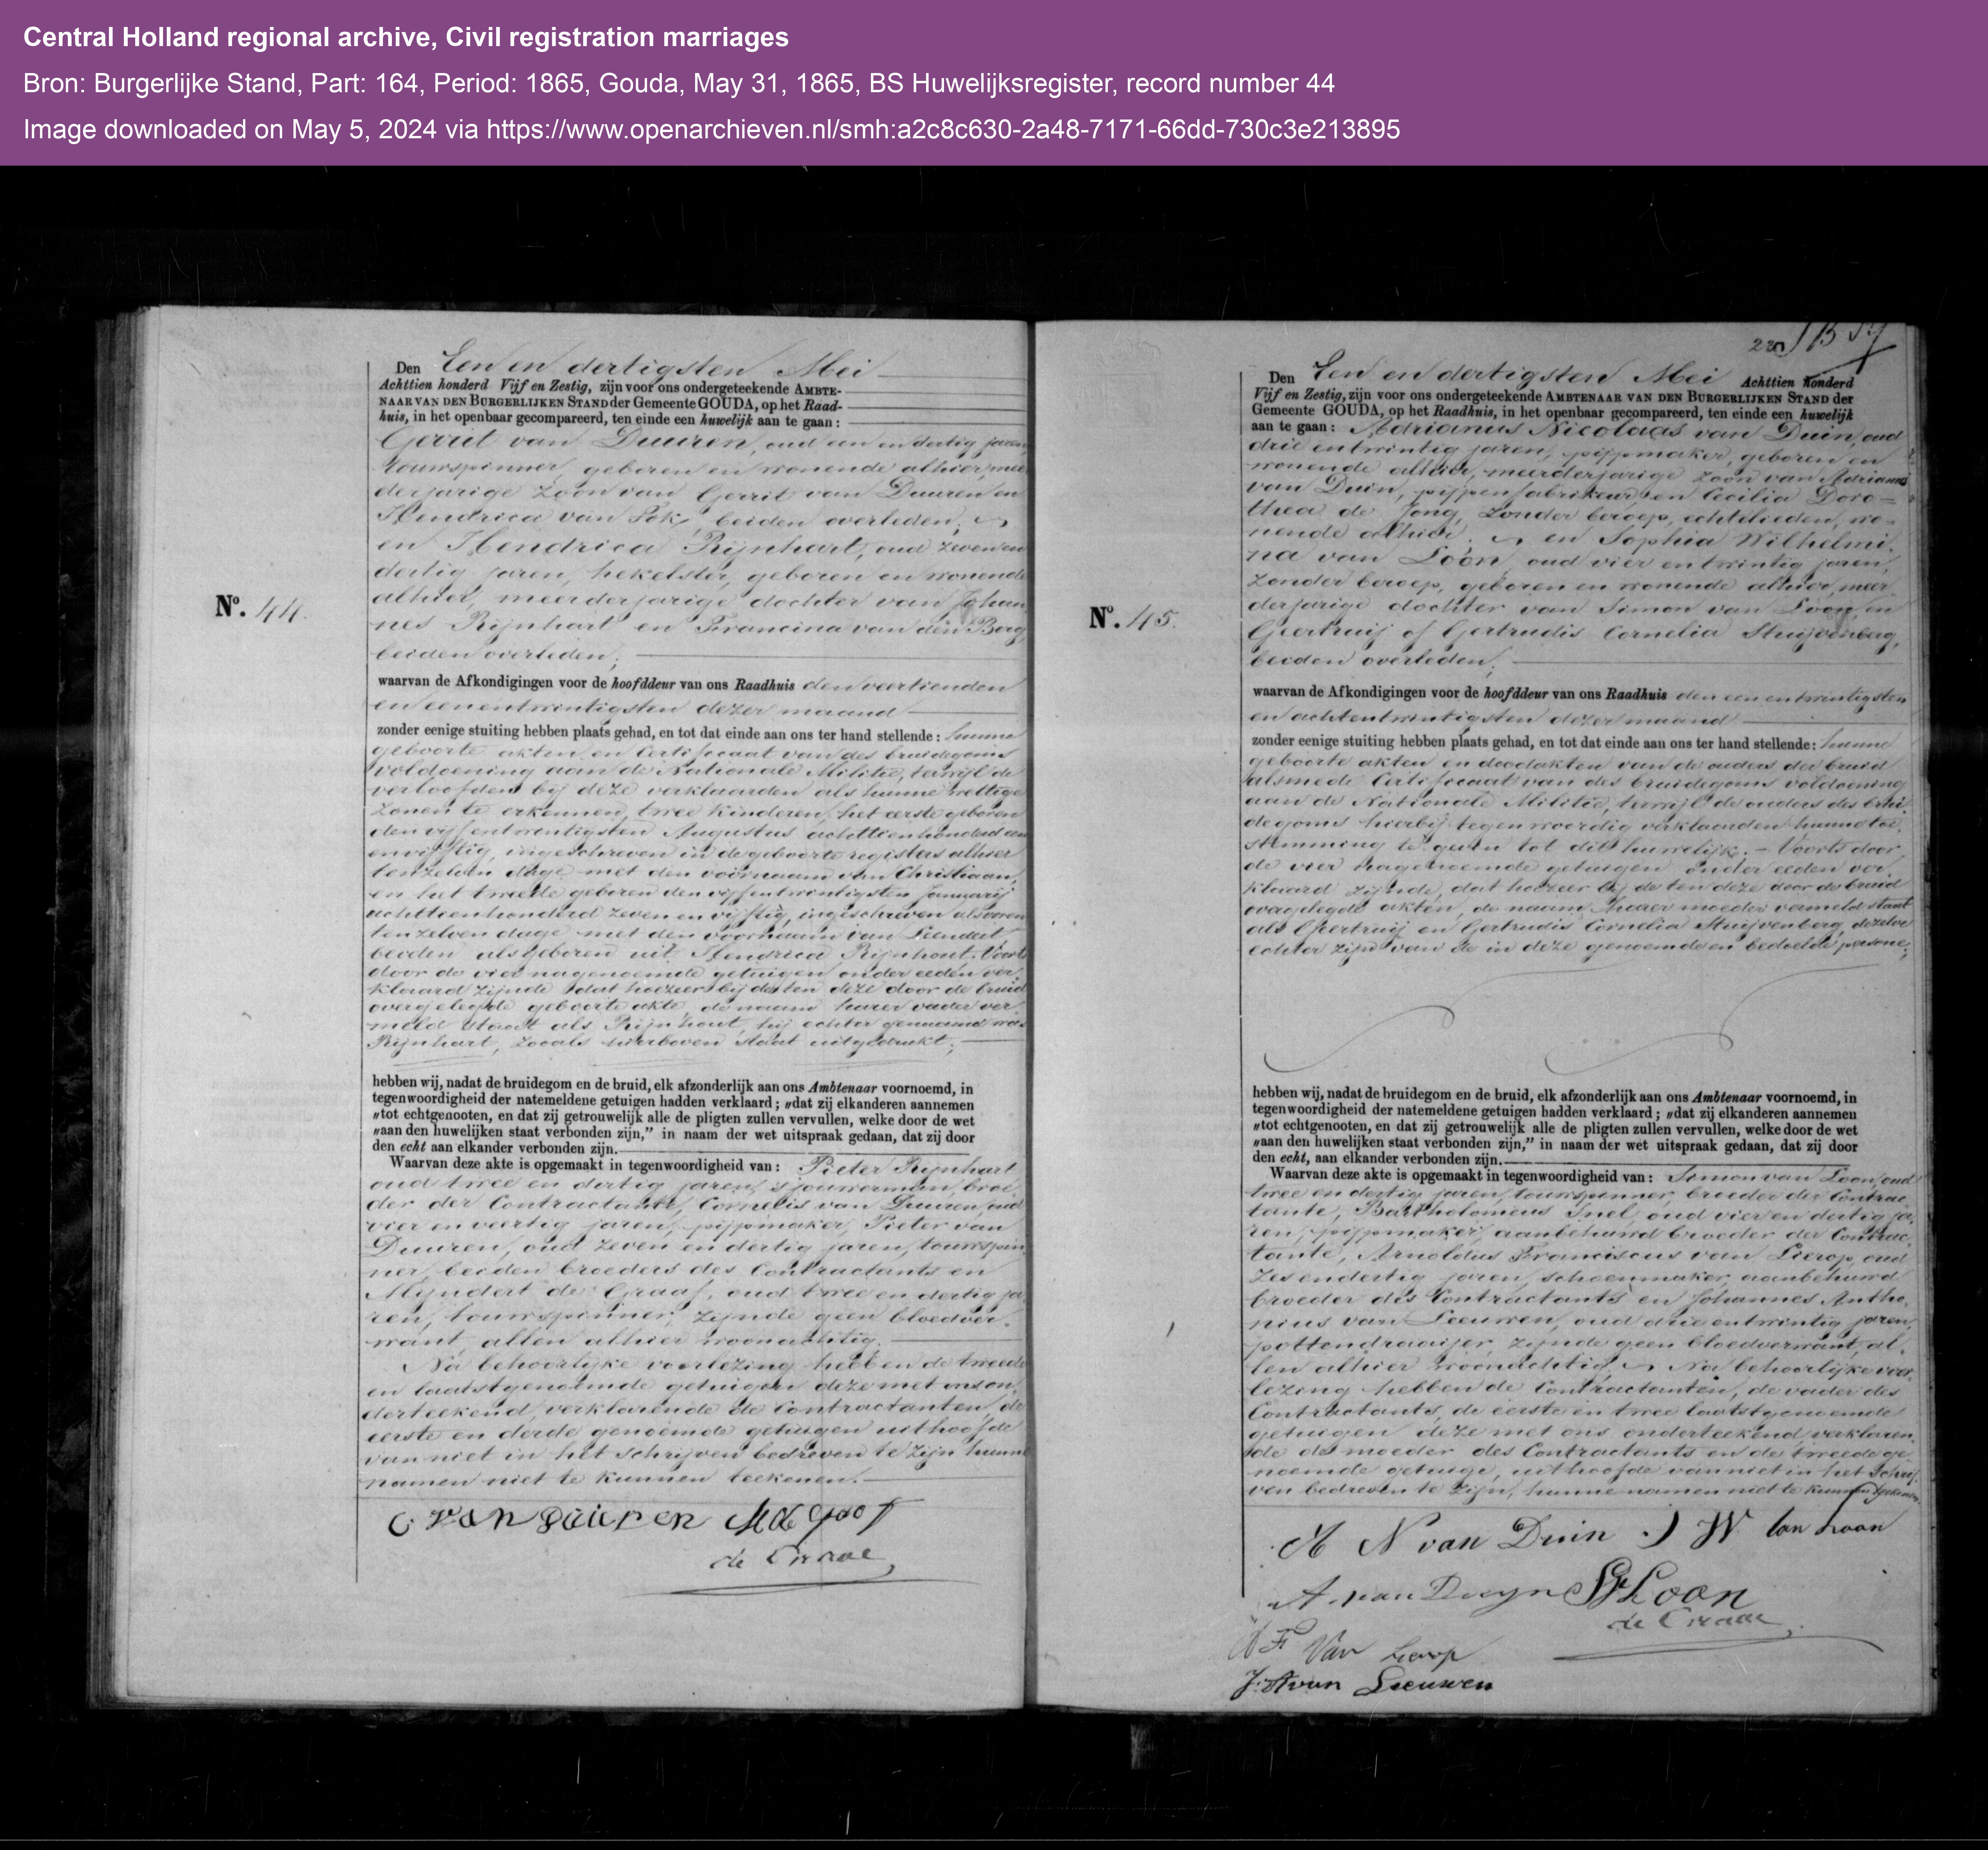 Central Holland regional archive, Civil registration marriages
Bron: Burgerlijke Stand, Part: 164, Period: 1865, Gouda, May 31, 1865, BS Huwelijksregister, record number 44
Image downloaded on May 5, 2024 via https://www.openarchieven.nl/smh:a2c8c630-2a48-7171-66dd-730c3e213895
No. 44.
Den Een en dertigsten Mei
Achttien honderd Vijf en Zestig, zijn voor ons ondergeteekende AMBTE-
NAAR VAN DEN BURGERLIJKEN STAND der Gemeente GOUDA, op het Raad-
huis, in het openbaar gecompareerd, ten einde een huwelijk aan te gaan:
Gerrit van Duuren, oud een en dertig jaren,
touwspinner, geboren en wonende alhier, meer
derjarige zoon van Gerrit van Duuren en
Hendrica van Pok, beiden overleden;
en Hendrica Rijnhart, oud zeven en
dertig jaren, hekelster, geboren en wonende
alhier, meerderjarige dochter van Johan
nes Rijnhart en Francina van den Berg,
beiden overleden;
waarvan de Afkondigingen voor de hoofddeur van ons Raadhuis den veertienden
en eenentwintigsten dezer maand
zonder eenige stuiting hebben plaats gehad, en tot dat einde aan ons ter hand stellende: hunne
geboorte akten en Certificaat van des bruidegoms
voldoening aan de Nationale Militie, terwijl de
verloofden bij deze verklaarden als hunne wettige
zonen te erkennen, twee kinderen, het eerste geboren
den vijfentwintigsten Augustus achttienhonderd een
en vijftig, ingeschreven in de geboorte registers alhier
tenzelven dage met den voornaam van Christiaan,
en het tweede geboren den vijfentwintigsten Januarij
achttienhonderd zeven en vijftig, ingeschreven alvoren
tenzelven dage met den voornaam van Leendert
beiden als geboren uit Hendrica Rijnhout. Voorts
door de vier nagenoemde getuigen onder eeden ver
klaard zijnde dat hoezeer bij de ten deze door de bruid
overgelegde geboorte akte, de naam harer vader ver
meld staat als Rijnhout, hij echter genaamd was
Rijnhart, zooals hierboven staat uitgedrukt;
hebben wij, nadat de bruidegom en de bruid, elk afzonderlijk aan ons Ambtenaar voornoemd, in
tegenwoordigheid der natemeldene getuigen hadden verklaard; „dat zij elkanderen aannemen
„tot echtgenooten, en dat zij getrouwelijk alle de pligten zullen vervullen, welke door de wet
„aan den huwelijken staat verbonden zijn,” in naam der wet uitspraak gedaan, dat zij door
den echt aan elkander verbonden zijn.
Waarvan deze akte is opgemaakt in tegenwoordigheid van: Pieter Rijnhart
oud twee en dertig jaren, sjouwerman, broe
der der Contractante, Cornelis van Duuren, oud
vier en veertig jaren, pijpmaker, Pieter van
Duuren, oud zeven en dertig jaren, touwspin
ner, beiden broeders des Contractants en
Mijndert de Graaf, oud twee en dertig ja
ren, touwspinner, zijnde geen bloedver
want, allen alhier woonachtig.
Na behoorlijke voorlezing hebben de tweede
en laatstgenoemde getuigen deze met ons on
derteekend, verklarende de Contractanten, de
eerste en derde genoemde getuigen uithoofde
van niet in het schrijven bedreven te zijn hunne
namen niet te kunnen teekenen.
C van Duuren
No. 45.
Den Een en dertigsten Mei Achttien honderd
Vijf en Zestig, zijn voor ons ondergeteekende AMBTENAAR VAN DEN BURGERLIJKEN STAND der
Gemeente GOUDA, op het Raadhuis, in het openbaar gecompareerd, ten einde een huwelijk
aan te gaan: Adrianus Nicolaas van Duin, oud
drie entwintig jaren, pijpmaker, geboren en
wonende alhier, meerderjarige zoon van Adrianus
van Duin, pijpenfabrikeur, en Cecilia Doro=
thea de Jong, zonder beroep, echtelieden, wo=
nende alhier; en Sophia Wilhelmi
na van Loon, oud vier entwintig jaren,
zonder beroep, geboren en wonende alhier, meer
derjarige dochter van Simon van Loon, en
Geertruij of Gertrudis Cornelia Stuijvenberg,
beiden overleden;
waarvan de Afkondigingen voor de hoofddeur van ons Raadhuis den een entwintigsten
en achtentwintigsten dezer maand
zonder eenige stuiting hebben plaats gehad, en tot dat einde aan ons ter hand stellende: hunne
geboorte akten en doodakten van de ouders der bruid
alsmede Certificaat van des bruidegoms voldoening
aan de Nationale Militie, terwijl de ouders des brui
degoms hierbij tegenwoordig verklaarden hunne toe
stemming te geven tot dit huwelijk. – Voorts door
de vier nagenoemde getuigen onder eeden ver
klaard zijnde, dat hoezeer bij de ten deze door de bruid
overgelegde akten, de naam harer moeder vermeld staat
als Geertruij en Gertrudis Cornelia Stuijvenberg, dezelve
echter zijn van de in deze genoemde en bedoelde persone;
hebben wij, nadat de bruidegom en de bruid, elk afzonderlijk aan ons Ambtenaar voornoemd, in
tegenwoordigheid der natemeldene getuigen hadden verklaard; „dat zij elkanderen aannemen
„tot echtgenooten, en dat zij getrouwelijk alle de pligten zullen vervullen, welke door de wet
„aan den huwelijken staat verbonden zijn,” in naam der wet uitspraak gedaan, dat zij door
den echt, aan elkander verbonden zijn.
Waarvan deze akte is opgemaakt in tegenwoordigheid van: Simon van Loon, oud
twee en dertig jaren, touwspinner, broeder der Contrac
tante, Bartholomeus Snel, oud vier en dertig ja
ren, pijpmaker, aanbehuwd broeder der Contrac
tante, Arnoldus Franciscus van Lierop, oud
zesendertig jaren, schoenmaker, aanbehuwd
broeder des Contractants en Johannes Antho
nius van Leeuwen, oud drie entwintig jaren,
pottendraaijer, zijnde geen bloedverwant, al
len alhier woonachtig. Na behoorlijke voor
lezing hebben de Contractanten, de vader des
Contractants, de eerste en twee laatstgenoemde
getuigen deze met ons onderteekend, verklaren
de de moeder des Contractants en de tweede ge
noemde getuige, uithoofde van niet in het schrij
ven bedreven te zijn, hunne namen niet te kunnen teekenen.
A N van Duin S W van Loon
A. van Duyn S v Loon
A F Van Lierop
J. A van Leeuwen